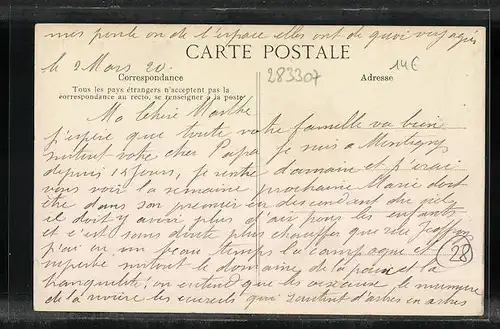 mes poule on de l'espace elles ont de quoi voyager
le 2 Mars 20.
CARTE POSTALE
283307
14€
Correspondance
Adresse
Tous les pays étrangers n'acceptent pas la
correspondance au recto, se renseigner à la poste
Ma Chère Marthe
j'espère que toute votre famille va bien
surtout votre cher Papa je suis a Montigny
depuis 15 jours, je rentre demain et j'irai
vous voir la semaine prochaine Marie doit
être dans son premier en descendant du ciel
il doit y avoir plus d'air pour les enfants
et c'est sans doute plus chauffer que rue
j'ai eu un beau temps la campagne est
superbe surtout le domaine de la et la
tranquilité on entend que les oiseaux le murmure
de la rivière les écureils qui sautent d'arbres en arbres
28